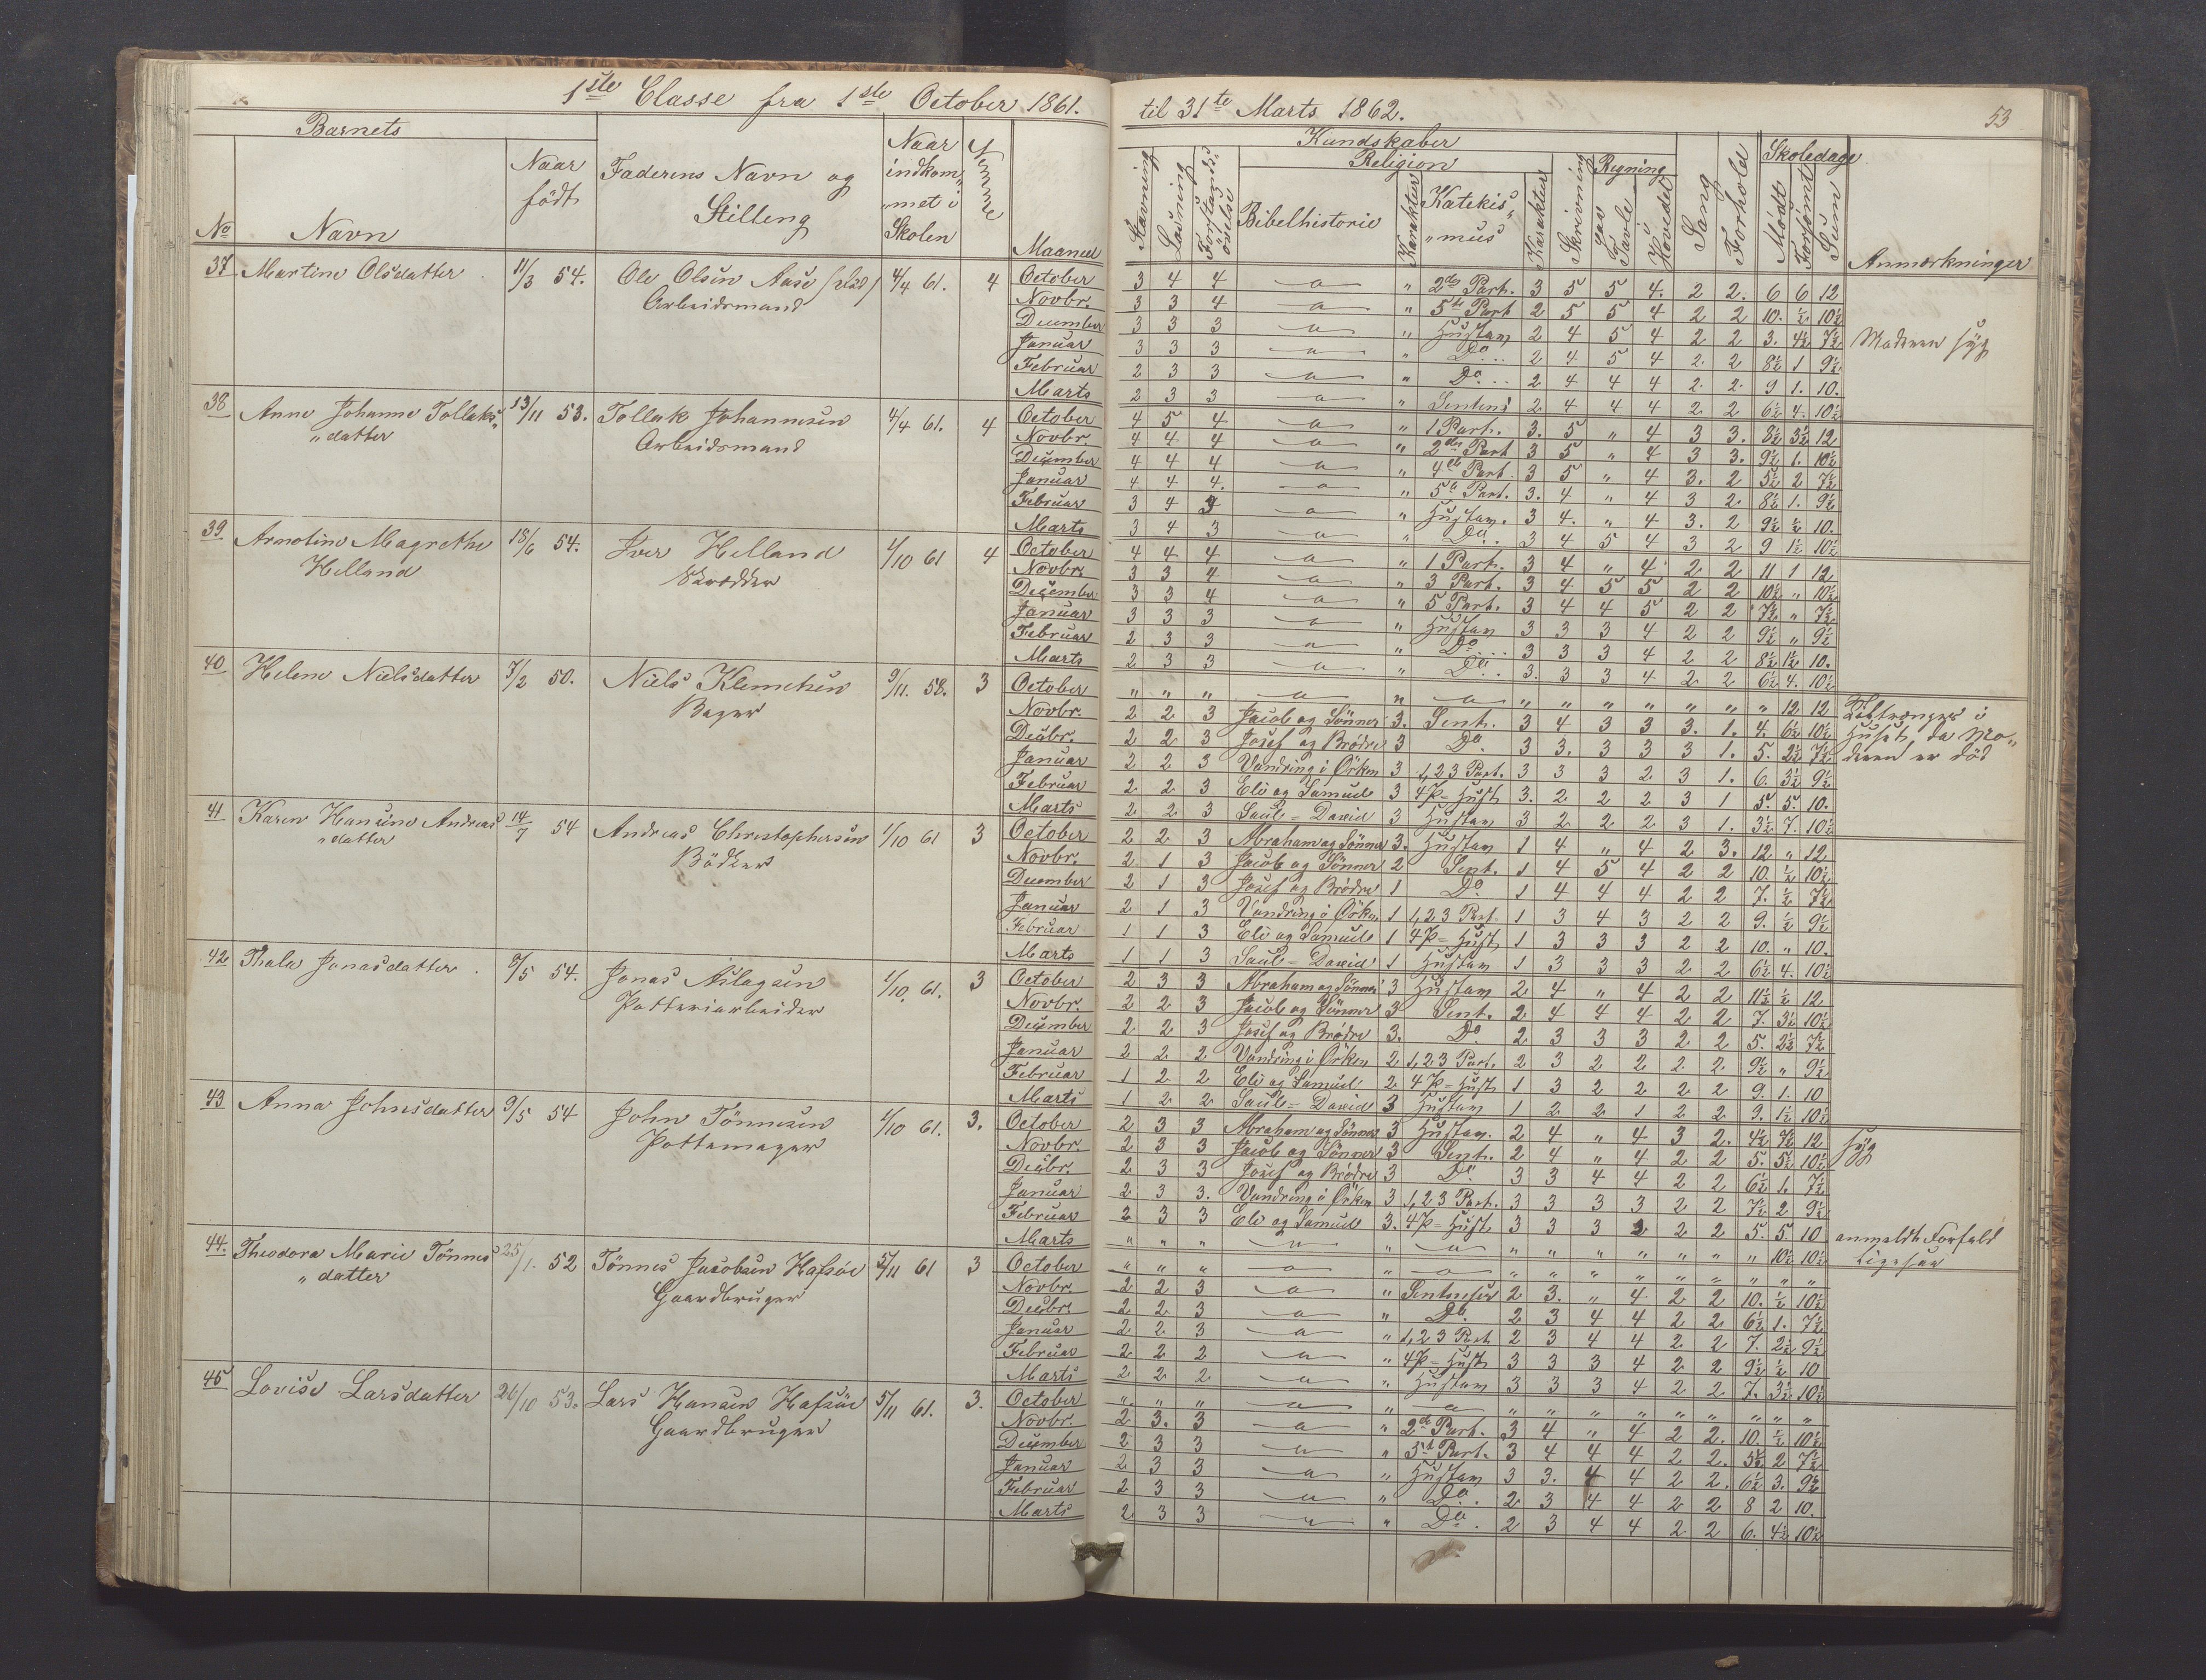 1ste Classe fra 1ste October 1861.
til 31te Marts 1862.
53
Barnets
No
Navn
Naar födt
Faderens Navn og Stilling
Naar indkom„ „met i Skolen
Maaned
Kundskaber
Stavning
Læsning
Forstands„ övelse
Religion
Bibelhistorie
Karakter
Katekis„ „mus
Karakter
Skrivning
Regning
paa Tavle
i Hovedet
Sang
Forhold
Skoledage
Mödt
Forsömt
Sum
Anmærkninger
37 Martine Olsdatter 11/3 54. Ole Olsen Aase 4/4 61. 4
Arbeidsmand
October 3 4 4 " 2den Part. 3 5 5 4. 2 2. 6 6 12
Novbr. 3 3 4 " 5te Part 2 5 5 4 2 2 10. ½ 10½
December 3 3 3 " Hustavn 2 4 5 4 2 2 3. 4½ 7½ Moderen syg
Januar 3 3 3 " Do 2 4 5 4 2 2 8½ 1 9½
Februar 2 3 3 " Do 2 4 4 4 2 2 9 1. 10.
Marts 2 3 3 " Sentens 2 4 4 4 2 2 6½ 4. 10½
38 Anne Johanne Tollaks„ 13/11 53. Tollak Johannesen 4/4 61. 4
„datter Arbeidsmand
October 4 5 4 " 1 Part. 3. 5 " 4 3 3. 8½ 3½ 12
Novbr. 4 4 4 " 2den Part 3 5 " 4 3 3. 9½ 1. 10½
December 4 4 4 " 4de Part 3 5 " 4 3. 2 5½ 2 7½
Januar 4 4 4. " 5te Part. 3. 4 " 4 3 2 8½ 1. 9½
Februar 3 4 3 " Hustavn. 3 4. " 4 3. 2 9½ ½ 10.
Marts 3 4 3 " Do 3 4 5 4 3 2 9 1½ 10½
39 Arnoline Magrethe 18/6 54. Iver Helland 1/10 61 4
Helland Skrædder
October 4 4 4 " 1 Part. 3 4 " 4 2 2 11 1 12
Novbr. 3 3 4 " 3 Part. 3 4 5 5 2 2 10½ " 10½
December 3 3 4 " 5 Part. 3 4 4 5 2 2 7½ " 7½
Januar 3 3 3 " Hustavn 3 3 3 4 2 2 9½ " 9½
Februar 2 3 3 " Do 3 3 3 4 2 2 8½ 1½ 10.
Marts 2 3 3 " Do 3. 3 3 4 2 2 6½ 4. 10½
40 Helene Nielsdatter 7/2 50. Niels Klemetsen 9/11. 58. 3
Bager
October " " " " " " " " " " " 12 12 Tiltrænges i
Novbr. 2 2 3 Jacob og Sönner 3. Sent. 3 4 3 3 3. 1. 4. 6½ 10½ Huset, da Mo„
Decbr. 2 2 3 Josef og Brödre 3 Do 3 3. 3 3 3 1. 5. 2½ 7½ deren er död
Januar 2 2 3 Vandring i Örken 3 1, 2 3 Part. 3 3 3 2 3 1. 6. 3½ 9½
Februar 2 2 3 Eli og Samuel 3 4 P= Hust. 3. 2 2 2 3 1 5. 5. 10.
Marts 2 2 3 Saul = David 3 Hustavn 3 2 2 2 3 1. 3½ 7. 10½
41 Karen Hansine Andreas 14/7 54 Andreas Christophersen 1/10 61 3
„datter Bödker
October 2 2 3 Abraham og Sönner 3. Hustavn 1 4 " 4 2 3. 12 " 12
Novbr. 2 1 3 Jacob og Sönner 2 Sent. 1 4 5 4 2 2 10. ½ 10½
December 2 1 3 Josef og Brödre 1 Do 1 4 4 4 2 2 7. ½ 7½
Januar 2 1 3 Vandring i Örken 1 1, 2 3 Part. 1 3 4 3 2 2 9. ½ 9½
Februar 1 1 3 Eli og Samuel 1 4 P= Hust. 1 3 3 3 2 2 10. " 10.
Marts 1 1 3 Saul = David 1 Hustavn 1 3 3 3 2 2 6½ 4. 10½
42 Thala Jonasdatter 8/5 54. Jonas Aslagsen 1/10. 61. 3
Potteriarbeider
October 2 3 3 Abraham og Sönner 3 Hustavn 2 4 " 4 2 2 11½ ½ 12
Novbr. 2 2 3 Jacob og Sönner 3 Sent. 2 4 4 4 2 2 7. 3½ 10½
December 2 2 3 Josef og Brödre 3. Do 2 3 3 3 2 2 5. 2½ 7½
Januar 2 2 2 Vandring i Örken 2 1, 2 3 Part. 2 3 2 2 2 2 9½ " 9½
Februar 1 2 2 Eli og Samuel 2 4 P= Hust 1 3 2 2 2 2 9. 1. 10
Marts 1 2 2 Saul = David 3 Hustavn 1 2 2 1 2 2 9. 1½ 10½
43 Anna Johnsdatter 9/5 54 John Tönnesen 1/10 61. 3.
Pottemager
October 2 3 3 Abraham og Sönner 3 Hustavn. 2 4 " 4 3 2. 4½ 7½ 12 syg
Novbr. 2 3 3 Jacob og Sönner 3 Sent. 2 4 " 4 2 2 5. 5½ 10½
Decbr. 2 3 3 Josef og Brödre 3 Do 3 3 4 4 2 2 6½ 1. 7½
Januar 2 3 3. Vandring i Örken 3 1, 2 3 Part. 3 3 3 3 2 2 7½ 2 9½
Februar 2 3 3 Eli og Samuel 3. 4 P= Hust. 3 3 3 2 2 2 5. 5 10 anmeldt Forfald
Marts " " " " " " " " " " " 10½ 10½ ligesaa
44. Theodora Marie Tönnes 25/1. 52 Tönnes Jacobsen Hafsöe 5/11 61 3
„datter Gaardbruger
October " " " " " " " " " " " " "
Novbr. 2 2 3 " Sentenser 2 3. " 4 2 2 10. ½ 10½
Decbr. 2 2 3 " Do. 2 3 4 4 2 2 6½ 1. 7½
Januar 2 2 3 " 1, 2 3 Part 2 3 4 4 2 2 7. 2½ 9½
Februar 2 2 2 " 4 P= Hust 3 3 3 4 2 2 9½ ½ 10
Marts 2 2 2 " Hustavn 3 3 3 4 2 2 7. 3½ 10½
45 Lovise Larsdatter 26/10 53. Lars Hansen Hafsöe 5/11 61. 3.
Gaardbruger
October " " " " " " " " " " " " "
Novbr. 2 3. 3 " 2de Part. 3 4 " 4 2 2. 10. ½ 10½
December 2 3 3 " 5te Part. 3 4 4 4 2 2. 5½ 2 7½
Januar 2 3 3 " Hustavn 3 3. 4 4 2 2. 6½ 3. 9½
Februar 2 3 3 " Do. 2 3 4 4 2 2 8 2 10.
Marts 2 3 3 " Do. 2 3 4 4 2 2 6. 4½ 10½